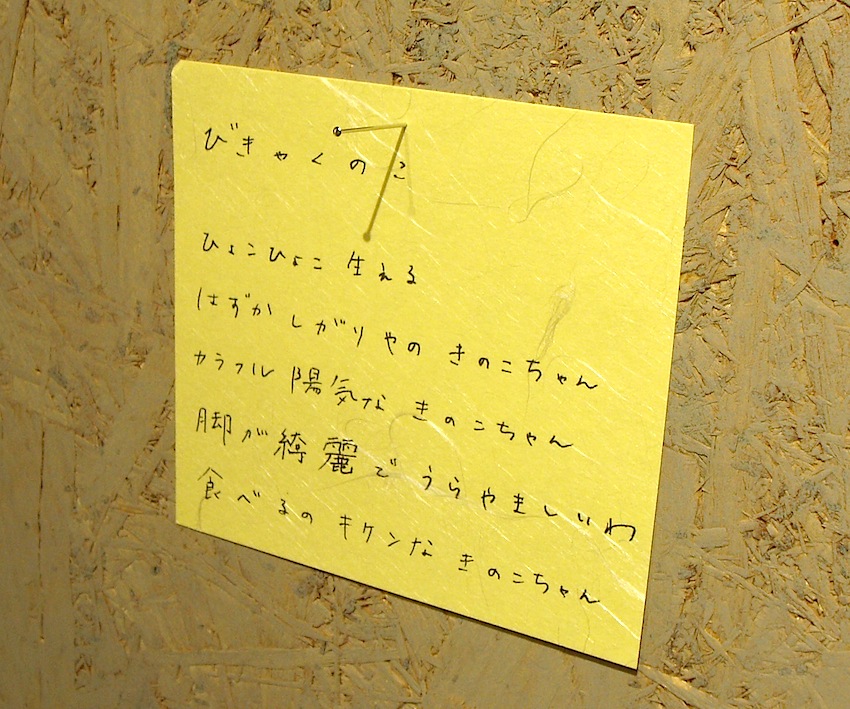 びきゃくのこ
ひょこひょこ 生える
はずかしがりやの きのこちゃん
カラフル 陽気な きのこちゃん
脚が綺麗で うらやましいわ
食べるの キケンな きのこちゃん